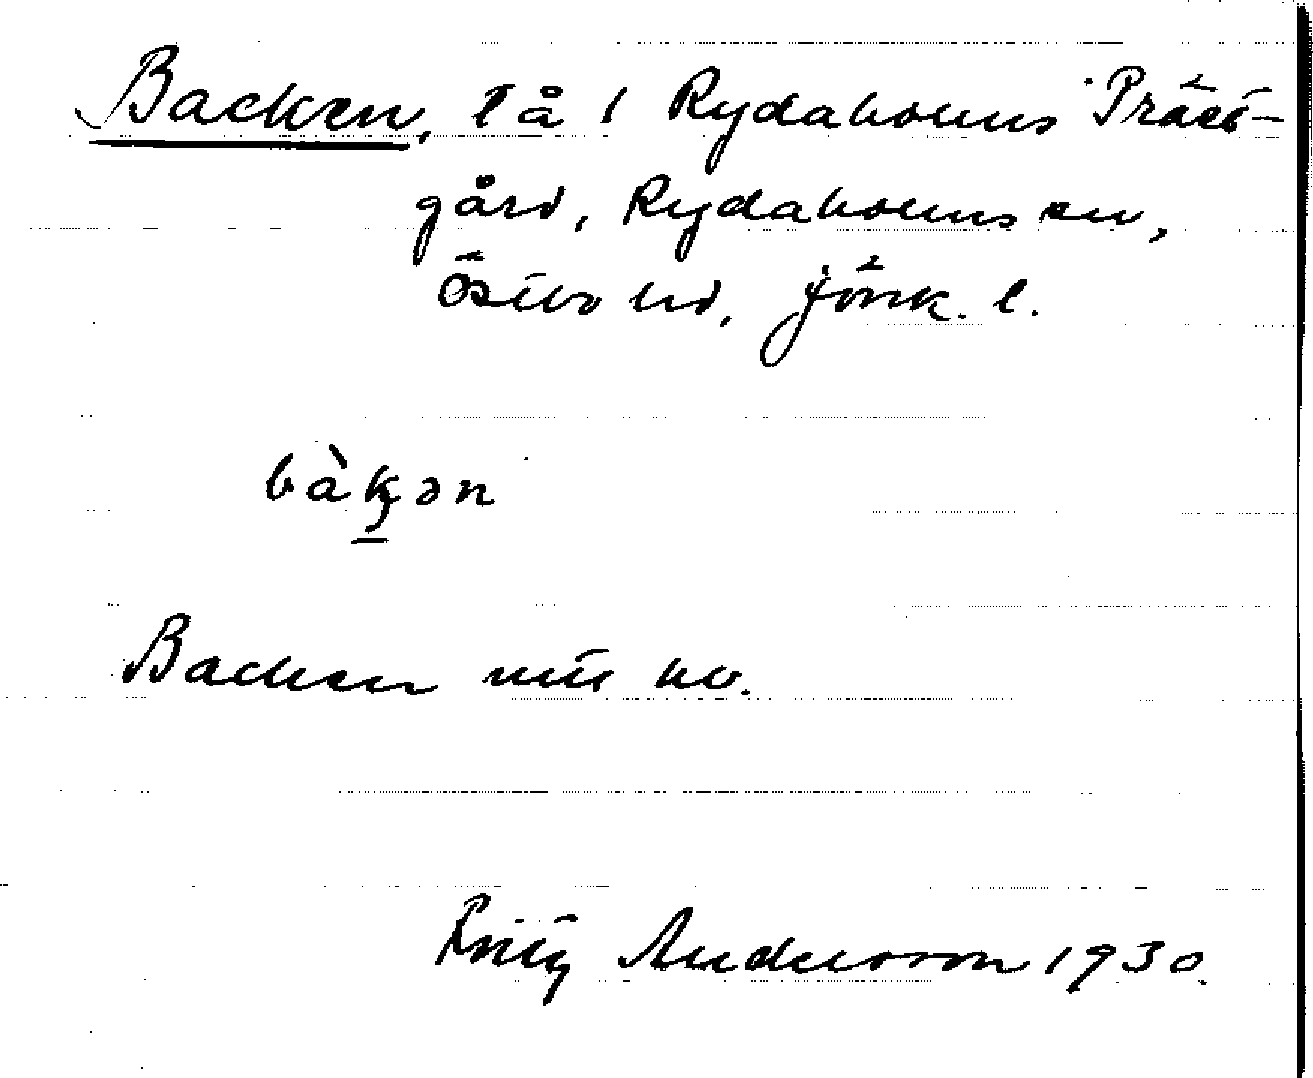 Backen, lå i Rydaholms Präst-
gård, Rydaholms sn,
Östbo hd, Jönk. l.
bàk̠ən
Backen
Fritz Andersson 1930.